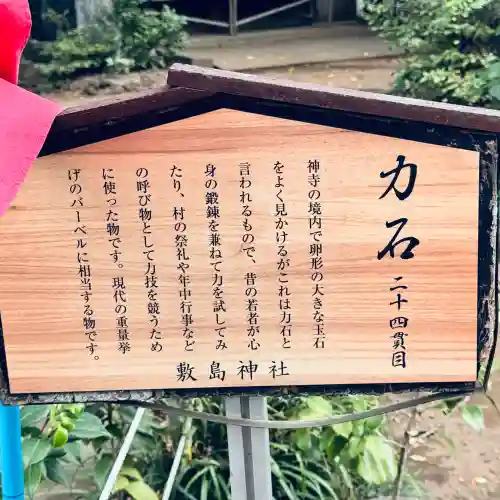 力石 二十四貫目
神寺の境内で卵形の大きな玉石
をよく見かけるがこれは力石と
言われるもので、昔の若者が心
身の鍛錬を兼ねて力を試してみ
たり、村の祭礼や年中行事など
の呼び物として力技を競うため
に使った物です。現代の重量挙
げのバーベルに相当する物です。
敷島神社